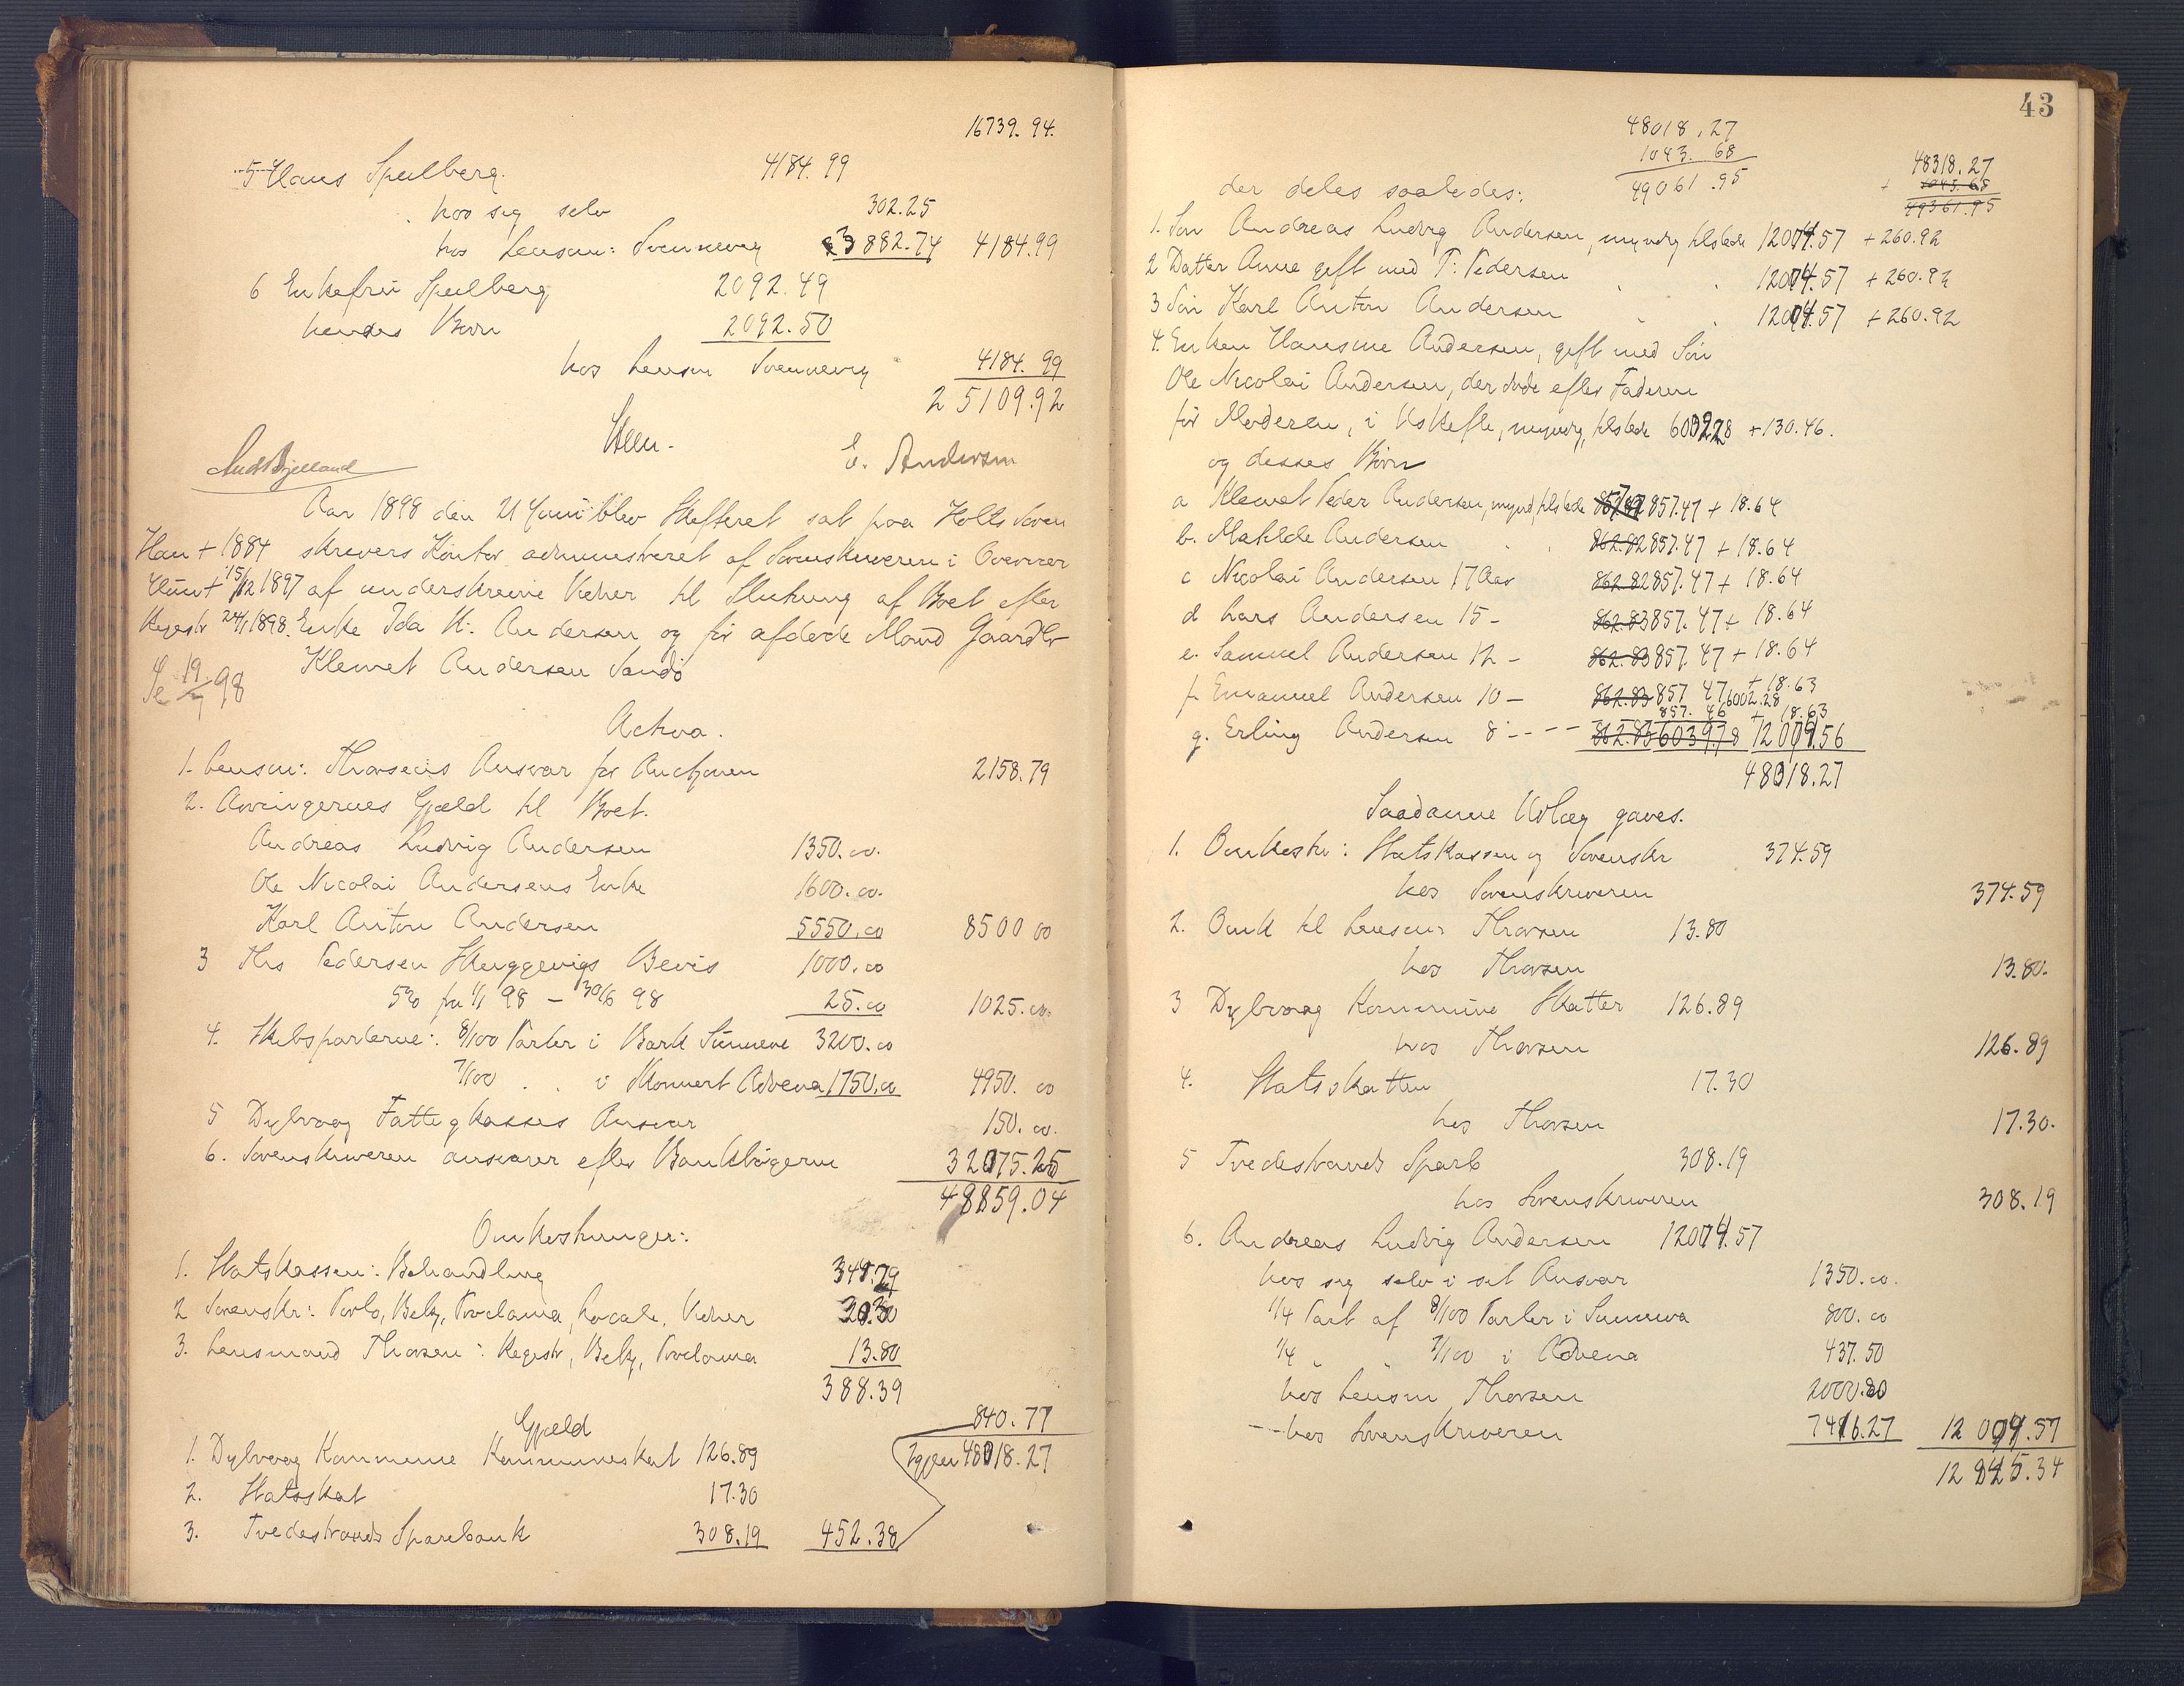 16739.94.
5 Hans Speilberg. 4184.99
hos seg selv 302.25
hos Lensm: Svennevig 3882.74 4184.99
6 Enkefru Speilberg 2092.49
hendes Børn 2092.50
hos Lensm Svennevig 4184.99
25109.92
Steen. E. Andersen
Aar 1898 den 21 Juni blev Skifteret sat paa Holts Soren
Han + 1884 skrivers Kontor administreret af Sorenskriveren i Overvær
Hun + 15/12 1897 af underskrevne Vidner til Slutning af Boet efter
Registr 24/1 1898. Enke Ida K. Andersen og før afdøde Mand Gaardbr
Se 19/7 98 Klemet Andersen Sandø
Activa.
1. Lensm: Thorsens Ansvar for Auctionen 2158.79
2. Arvingernes Gjæld til Boet.
Andreas Ludvig Andersen 1350.00.
Ole Nicolai Andersens Enke 1600.00.
Karl Anton Andersen 5550.00 8500 00
3 Ths Pedersen Skuggevigs Bevis 1000.00
5% fra 1/1 98 – 30/6 98 25.00 1025.00.
4. Skibsparterne: 8/100 Parter i Bark Sunneva 3200.00
7/100 . . i Skonnert Advena 1750.00 4950. 00
5 Dybvaag Fattigkasses Ansvar 150. 00.
6. Sorenskriveren ansvarer efter Bankbøgerne 32075.25
48859.04
Omkostninger:
1. Statskassen: Behandling 344.29
2 Sorenskr: Porto, Bekj, Proclama, Locale, Vidner 30.30
3. Lensmand Thorsen: Registr, Bekj, Proclama 13.80
388.39
840.77
Gjæld
1. Dybvaag Kommune Kommuneskat 126.89 Igjen 48018.27
2. Statsskat 17.30
3. Tvedestrands Sparebank 308.19 452.38
43
48018.27
1043. 68
49061.95
48318.27
+ 1043.68
49361.95
der deles saaledes:
1. Søn Andreas Ludvig Andersen, myndig tilstede 12004.57 + 260.92
2 Datter Anne gift med T. Pedersen . . 12004.57 + 260.92
3 Søn Karl Anton Andersen . . 12004.57 + 260.92
4. Enken Hansine Andersen, gift med Søn
Ole Nicolai Andersen, der døde efter Faderen
før Moderen, i Uskifte, myndig, tilstede 6002.28 + 130.46.
og dennes Børn
a Klemet Peder Andersen, mynd, tilstede 857.47 + 18.64
b. Matilde Andersen . . 862.82 857.47 + 18.64
c Nicolai Andersen 17 Aar 862.82 857.47 + 18.64
d Lars Andersen 15 – 862.83 857.47 + 18.64
e. Samuel Andersen 12 – 862.83 857.47 + 18.64
f. Emanuel Andersen 10 – 862.83 857 47 + 18.63
6002.28
857. 46 + 18.63
g. Erling Andersen 8 – – – 862.83 6039.78 12004.56
48018.27
Saadanne Udlæg gaves.
1. Omkostn: Statskassen og Sorenskr 374.59
hos Sorenskriveren 374.59
2. Omk til Lensm Thorsen 13.80
hos Thorsen 13.80.
3 Dybvaag Kommune Skatter 126.89
hos Thorsen 126.89
4. Statsskatten 17.30
hos Thorsen 17.30.
5 Tvedestrands Sparb 308.19
hos Sorenskriveren 308.19
6. Andreas Ludvig Andersen 12004.57
hos sig selv i sit Ansvar 1350.00.
1/4 Part af 8/100 Parter i Sunneva 800.00
1/4 . . 7/100 i Advena 437.50
hos Lensm Thorsen 2000.80
– hos Sorenskriveren 7416.27 12 004.57
12 845.34